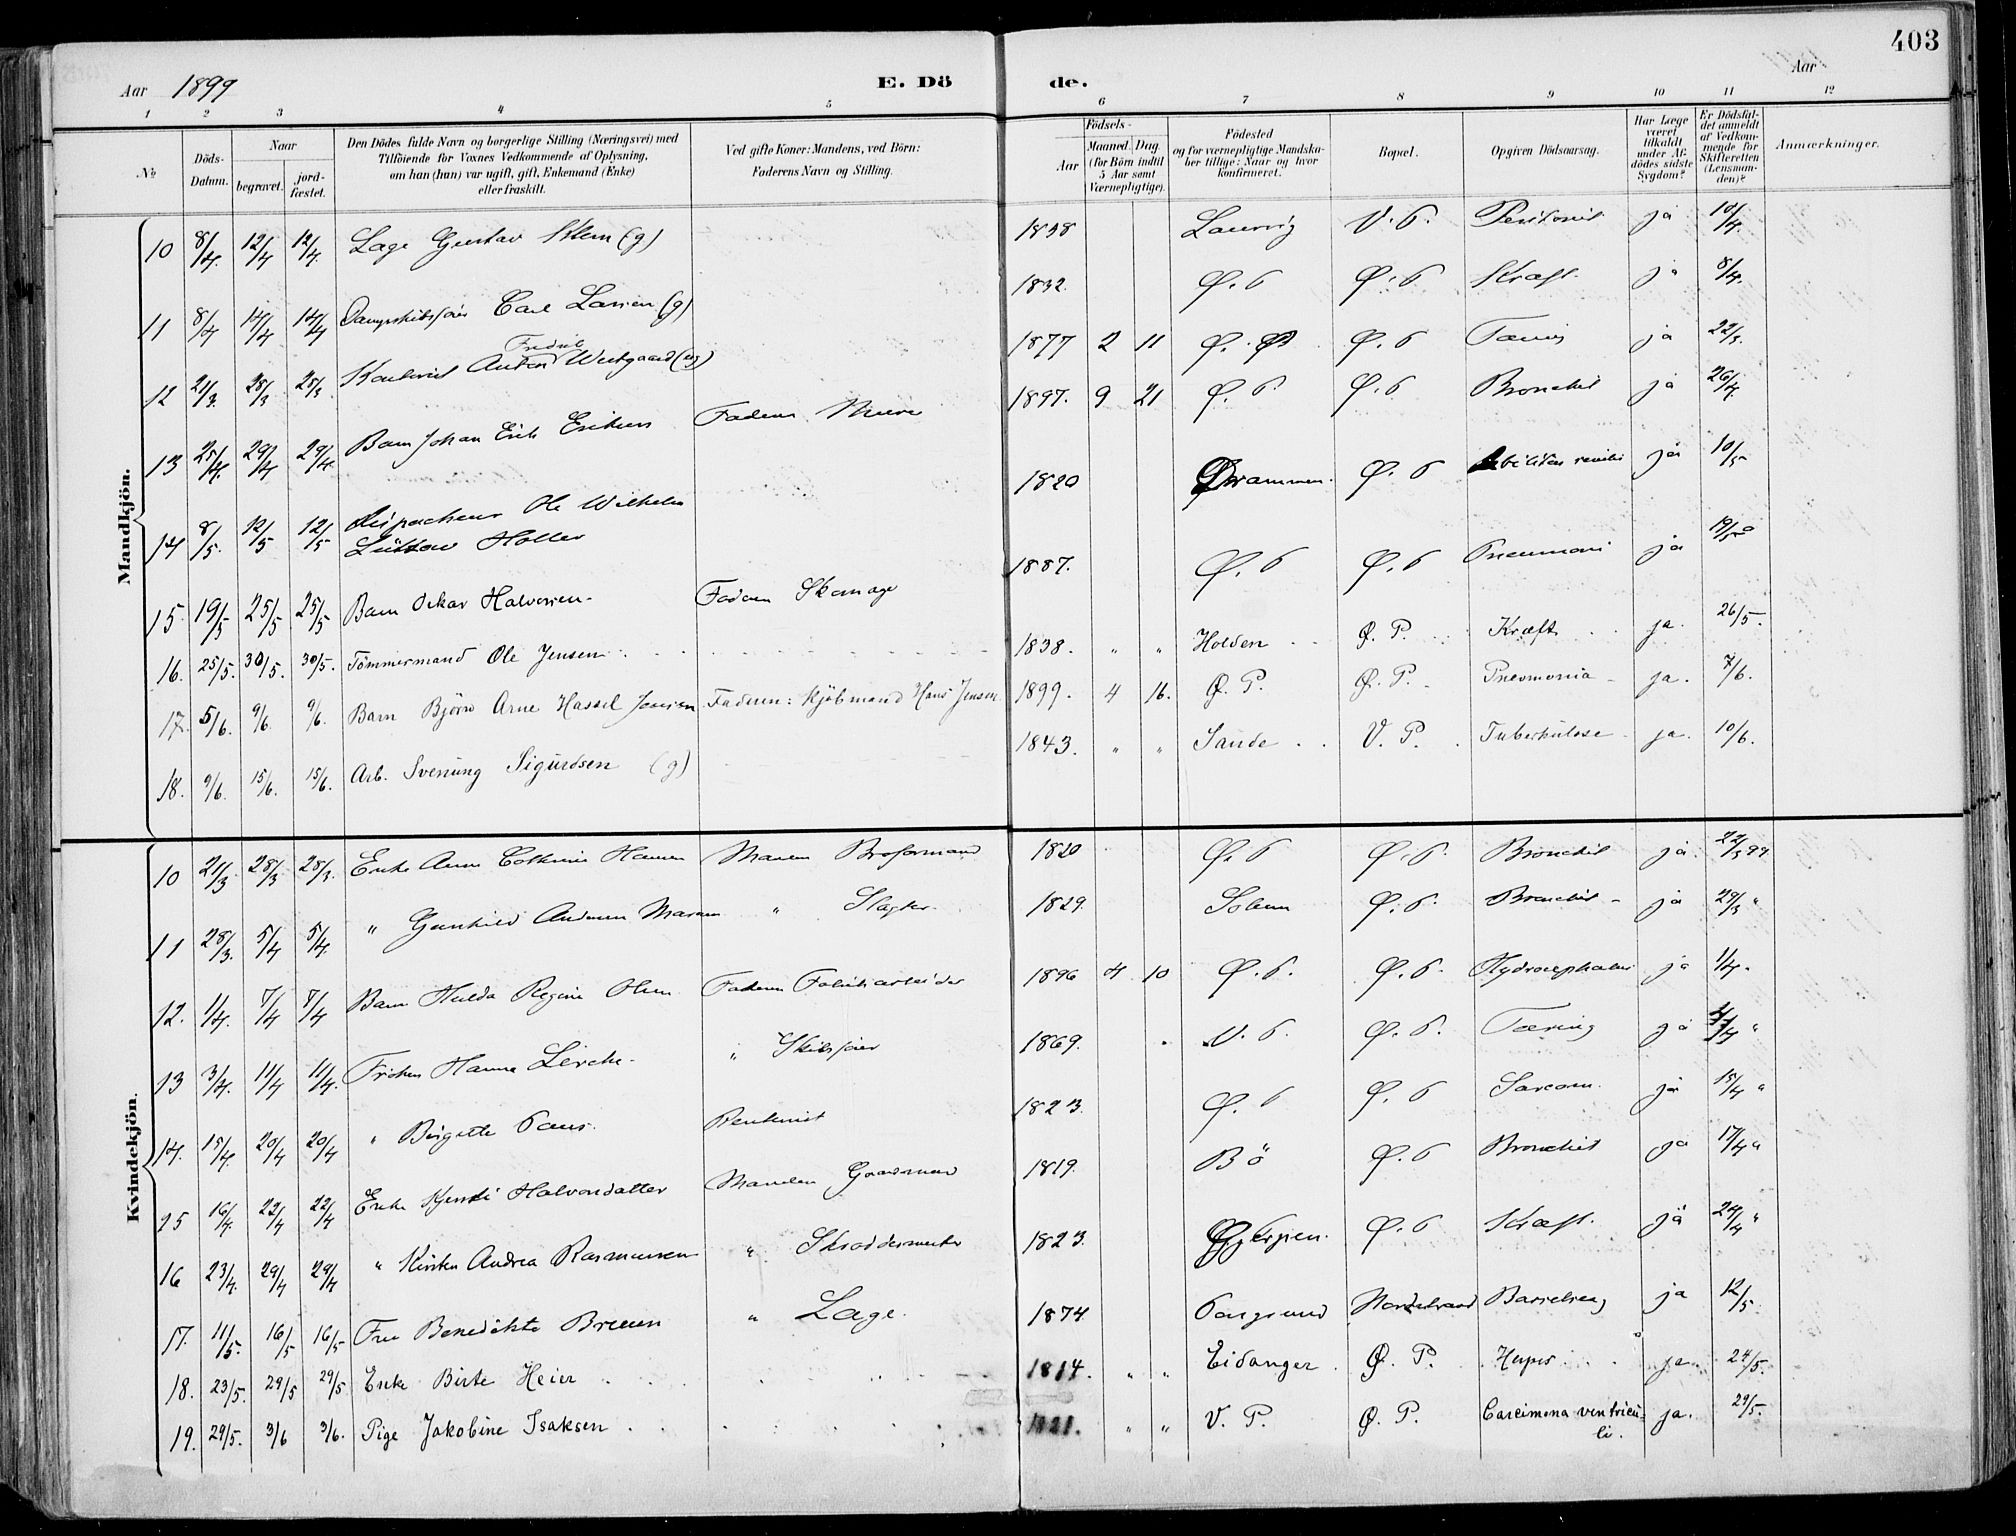 403
Aar 1899 E. Dö de. Aar
1 2 3 4 5 6 7 8 9 10 11 12
№
Döds-Datum.
Naar
begravet.
jord-fæstet.
Den Dödes fulde Navn og borgerlige Stilling (Næringsvei) med
Tilföiende for Voxnes Vedkommende af Oplysning,
om han (hun) var ugift, gift, Enkemand (Enke)
eller fraskilt.
Ved gifte Koner: Mandens, ved Börn:
Faderens Navn og Stilling.
Födsels-
Aar
Maaned. Dag.
(for Börn indtil
5 Aar samt
Værnepligtige).
Födested
og for værnepligtige Mandska-
ber tillige: Naar og hvor
konfirmeret.
Bopæl.
Opgiven Dödsaarsag.
Har Læge
været
tilkaldt
under Af-
dödes sidste
Sygdom?
Er Dödsfal-
det anmeldt
af Vedkom-
mende for
Skifteretten
(Lensman-
den)?
Anmærkninger.
Mandkjön.
10 8/4. 12/4 12/4. Læge Gustav Klem (g) 1838 Laurvig V. P. Peritonit ja 10/4.
11 8/4 14/4 14/4 Dampskibsfører Carl Larsen (g) 1832. Ø. P Ø. P Kræft. ja 8/4.
12 21/3. 25/3 25/3 Kontorist Anton Fredrik Westgaard (ug) 1877 2 11 Ø. P Ø. P Tæring ja 22/3.
13 25/4. 29/4 29/4. Barn Johan Erik Eriksen Faderen Murer 1897. 9 21 Ø. P. Ø. P Bronchit ja 26/4.
14 8/5. 12/5 12/5 Dispacheur Ole Wilhelm
Lüttow Holler 1820 Drammen. Ø. P Debilitas senilis ja 10/5
15 19/5 25/5 25/5 Barn Oskar Halvorsen Faderen Skomager 1887. Ø. P Ø. P Pneumoni ja 19/5
16. 25/5. 30/5. 30/5. Tømmermand Ole Jensen 1838. " " Holden Ø. P. Kræft ja. 26/5.
17. 5/6. 9/6. 9/6. Barn Björn Arne Hassel Jensen. Faderen: Kjöbmand Hans Jensen 1899. 4 16. Ø. P. Ø. P. Pneumonia ja. 7/6.
18. 9/6. 15/6. 15/6. Arb. Svenung Sigurdsen (g) 1843. " " Sande V. P. Tuberkulose ja. 10/6.
Kvindekjön.
10 21/3 28/3 28/3. Enke Anne Cathrine Hansen Manden Broformand 1820 Ø. P Ø. P. Bronchit ja. 22/3 99
11 28/3. 5/4 5/4. " Gunhild Andersen Manden " Slagter 1829. Solum Ø. P. Bronchit ja 29/3 "
12. 1/4. 7/4 7/4 Barn Hulda Regine Olsen Faderen Fabrikarbeider 1896 4 10 Ø. P. Ø. P. Hydrocephalus ja 1/4.
13 3/4. 11/4 11/4. Frøken Hanna Lerche. " Skibsfører 1869. V. P. Ø. P. Tæring ja 4/4 "
14. 15/4. 20/4 20/4 " Birgitte Paus. Rentenist 1823. Ø. P Ø. P Sarcom. ja 15/4 "
15 16/4. 22/4 22/4 Enke Kjersti Halvorsdatter Manden Gaardmand 1819. Bö Ø. P Bronchit ja 17/4 "
16 23/4. 29/4 29/4 " Kirsten Andrea Rasmussen " Skræddermester 1823. Gjerpen. Ø. P Kræft. ja 24/4 "
17. 11/5. 16/5 16/5 Fru Benedikte Breien " Læge. 1874. Porsgrund Nordstrand Barselseng ja 12/5.
18. 23/5. 29/5 29/5 Enke Birte Heier 1814. " " Eidanger. Ø. P. Herpes ja 24/5.
19. 29/5. 3/6 3/6. Pige Jakobine Isaksen " " V. P. Ø. P. Carcinoma ventricu=
li. ja. 29/5.